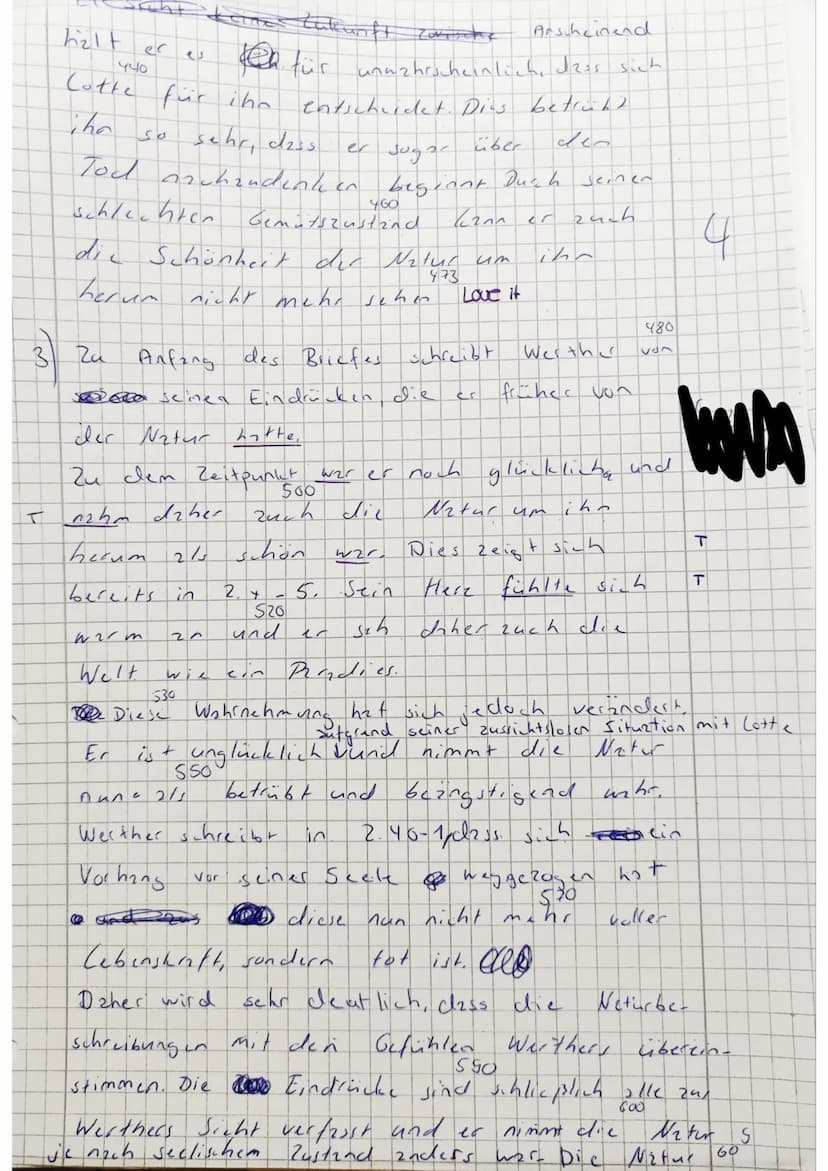 sieht keine Zukunft zwische Anscheinend
hält er es für unwahrscheinlich, dass sich
440
Lotte für ihn entscheidet. Dies betrübt
ihn so sehr, dass er sogar über den
Tod nachzudenken beginnt Duch seinen
460
schlechten Gemütszustand kann er auch
4
die Schönheit der Natur um ihn
473
herum nicht mehr sehen Love it
480
3) Zu Anfang des Briefes schreibt Werther von
seinen Eindrücken, die er früher von
der Natur hatte.
Zu dem Zeitpunkt war er noch glücklich und
500
T nahm daher auch die Natur um ihn
herum als schön war. Dies zeigt sich T
bereits in Z. 4 - 5. Sein Herz fühlte sich T
520
warm an und er sah daher auch die
Welt wie ein Paradies.
530
Diese Wahrnehmung hat sich jedoch verändert.
aufgrund seiner aussichtslosen Situation mit Lotte
Er ist unglücklich und nimmt die Natur
550
nun als betrübt und beängstigend wahr.
Werther schreibt in Z. 40-1, dass sich ein
Vorhang vor seiner Seele weggezogen hat
570
und aus diese nun nicht mehr voller
Lebenskraft, sondern tot ist.
Daher wird sehr deutlich, dass die Naturbe-
schreibungen mit den Gefühlen Werthers überein-
590
stimmen. Die Eindrücke sind schließlich alle aus
600
Werthers Sicht verfasst und er nimmt die Natur
je nach seelischem Zustand anders war. Die Natur 60